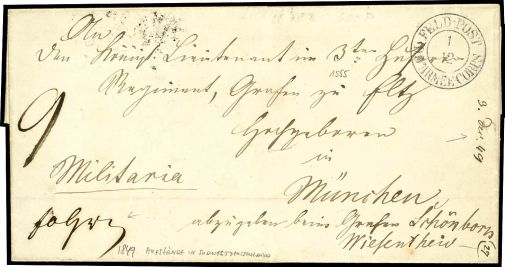 FELD-POST
1
12
ARMEE CORPS
An
den Königl. Lieutenant im 3ten
1555
Regiment, Grafen zu Eltz
Hochgeboren
in
9
Militaria
München
3. Dec. 49
abzugeben beim Grafen Schönborn
Wiesentheid
27
1849 AUFSTÄNDE IN SÜDWESTDEUTSCHLAND